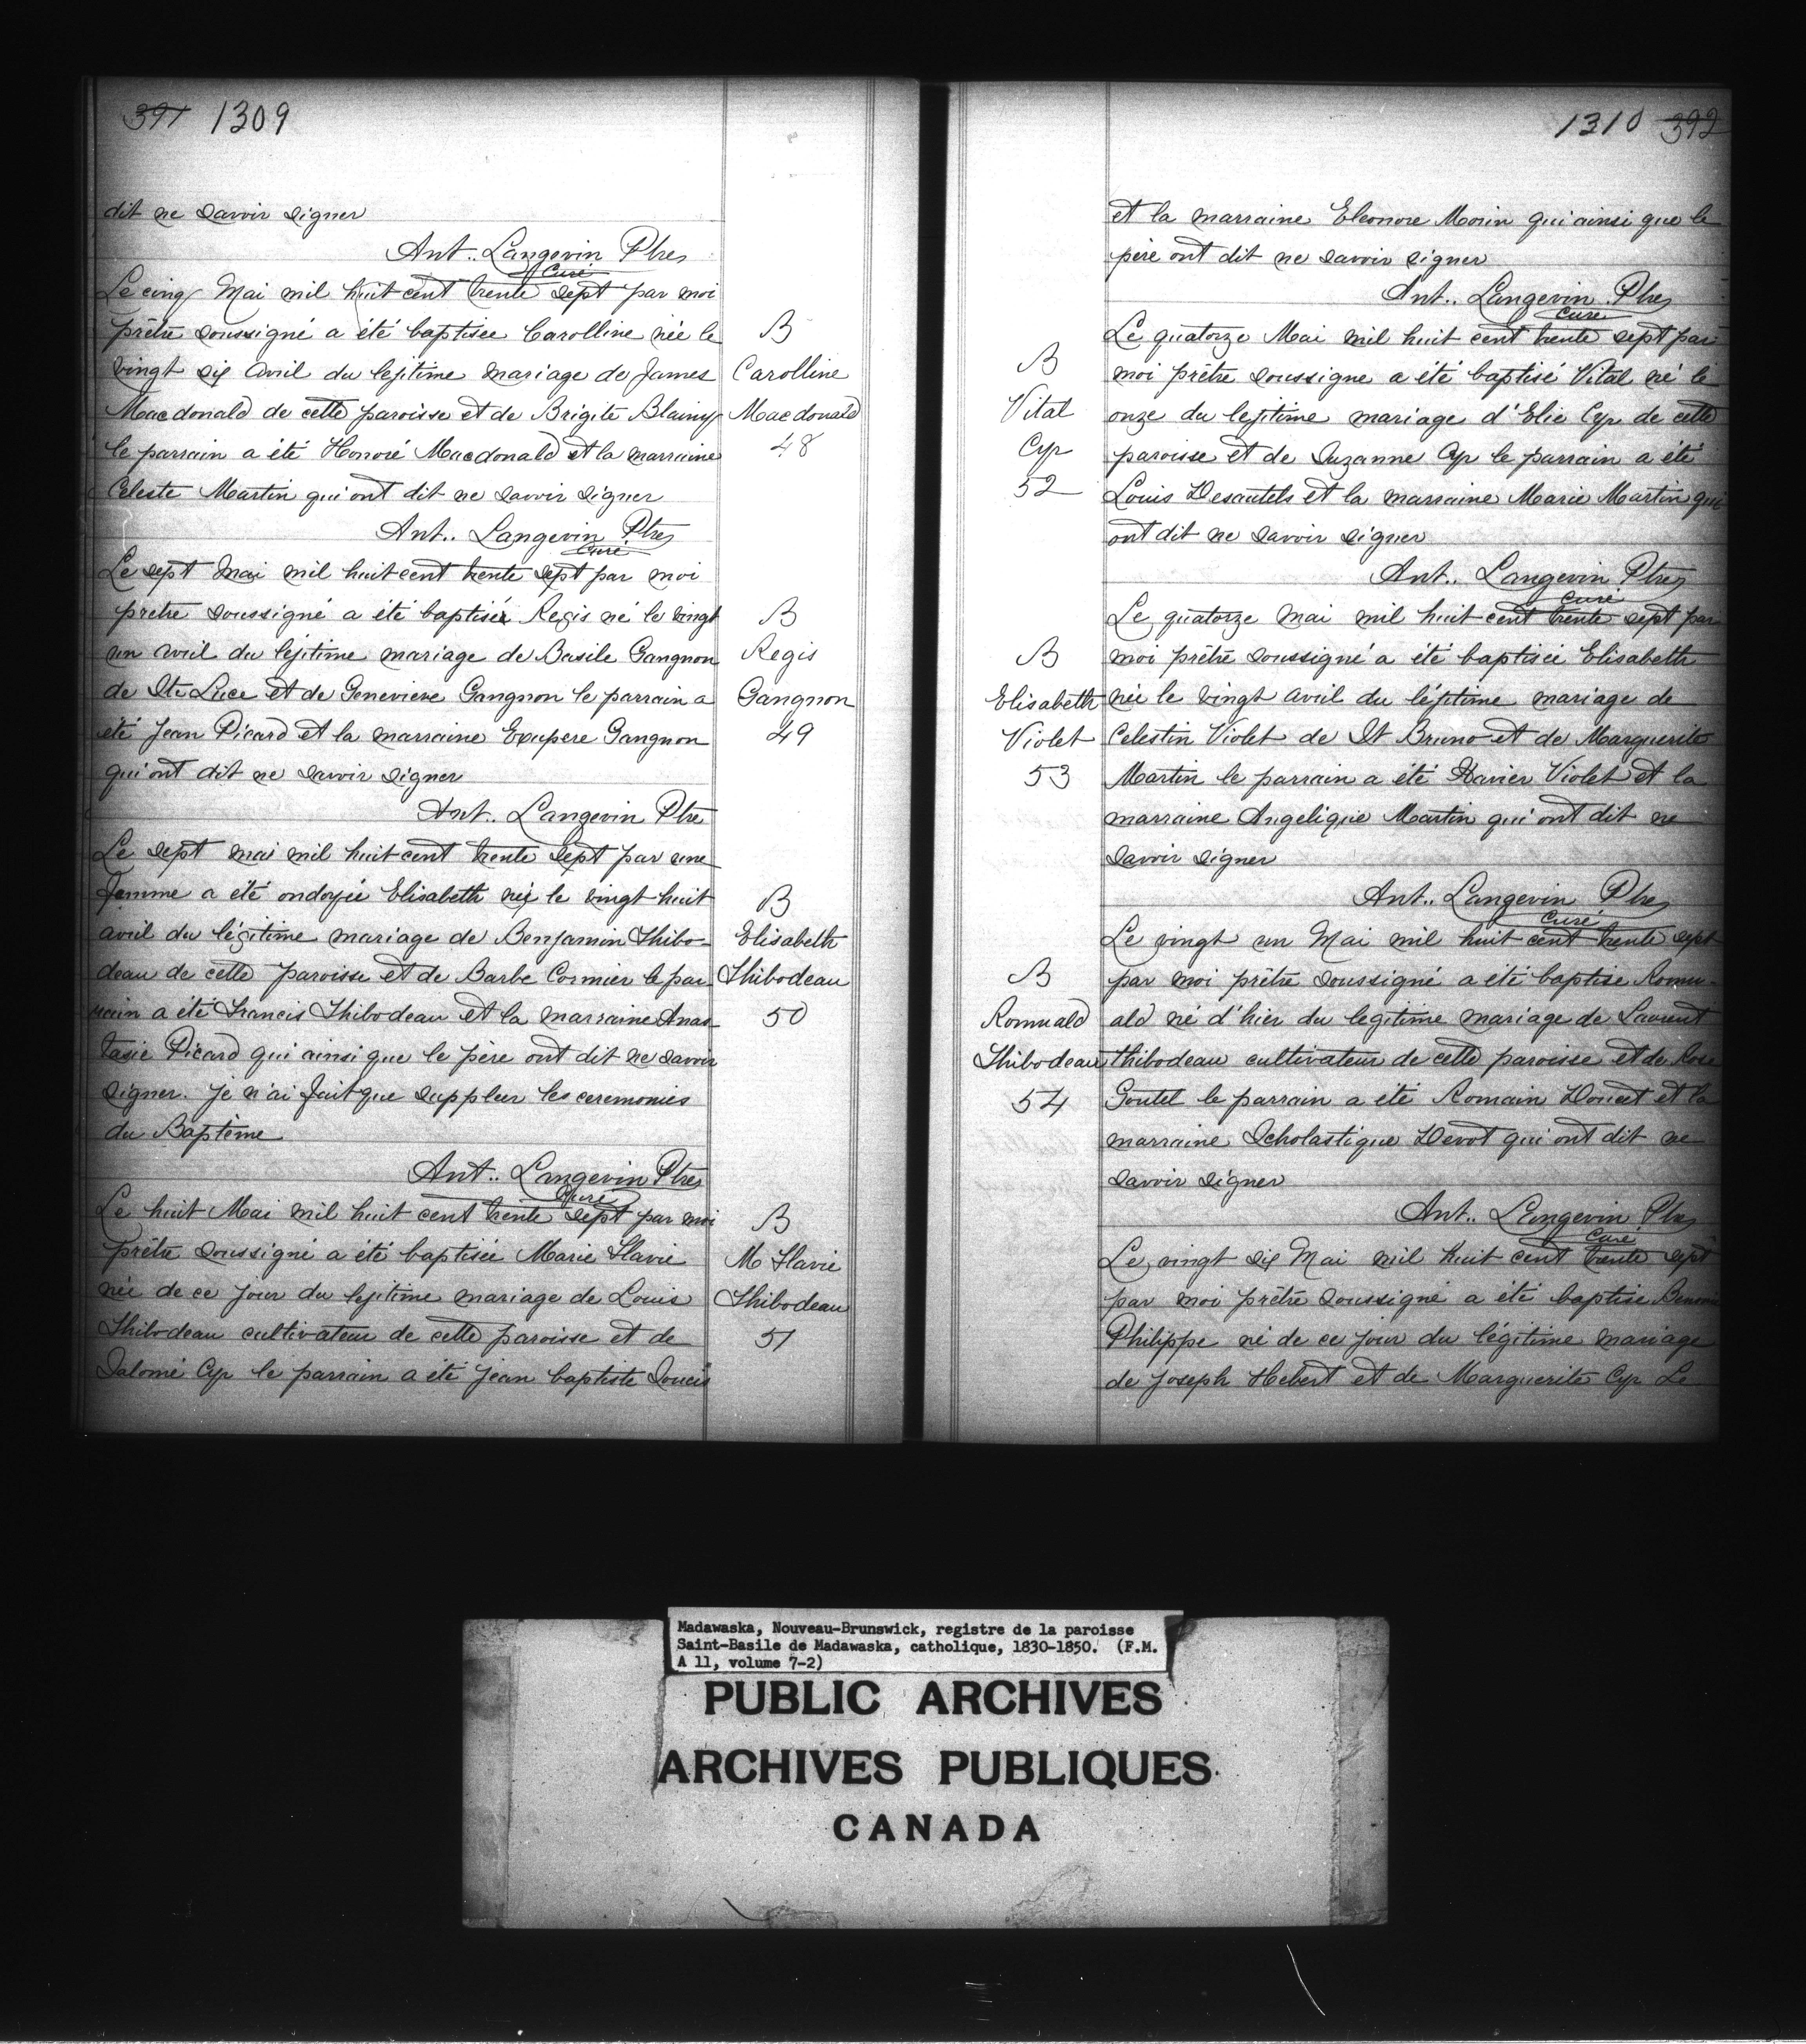 391 1309
dit ne savoir signer
Ant.. Langevin Ptre
Curé
Le cinq Mai mil huit cent trente sept par moi
prêtre soussigné a été baptisée Carolline née le
B
vingt six Avril du lejitime mariage de James
Carolline
Macdonald de cette paroisse et de Brigite Blainy
Macdonald
le parrain a été Honoré Macdonald et la marraine
48
Celeste Martin qui ont dit ne savoir signer
Ant.. Langevin Ptre
Curé
Le sept Mai mil huit cent trente sept par moi
prêtre soussigné a été baptisé Regis né le vingt
B
un avril du lejitime mariage de Basile Gangnon
Regis
de Ste Luce et de Genevieve Gangnon le parrain a
Gangnon
été Jean Picard et la marraine Exupere Gangnon
49
qui ont dit ne savoir signer
Ant. Langevin Ptre
Le sept mai mil huit cent trente sept par une
femme a été ondoyée Elisabeth née le vingt huit
B
avril du légitime mariage de Benjamin Thibo-
Elisabeth
deau de cette paroisse et de Barbe Cormier le par
Thibodeau
rain a été Francis Thibodeau et la marraine Anas
50
tasie Picard qui ainsi que le père ont dit ne savoir
signer. je n'ai fait que suppleer les ceremonies
du Baptême
Ant.. Langevin Ptre
Curé
Le huit Mai mil huit cent trente sept par moi
B
prêtre soussigné a été baptisée Marie Flavie
M Flavie
née de ce jour du lejitime mariage de Louis
Thibodeau
Thibodeau cultivateur de cette paroisse et de
51
Salomé Cyr le parrain a été Jean baptiste Doucis
1310 392
et la marraine Eleonore Morin qui ainsi que le
père ont dit ne savoir signer
Ant.. Langevin Ptre
Curé
Le quatorze Mai mil huit cent trente sept par
B
moi prêtre soussigne a été baptisé Vital né le
Vital
onze du lejitime mariage d'Elie Cyr de cette
Cyr
paroisse et de Suzanne Cyr le parrain a été
52
Louis Desautels et la marraine Marie Martin qui
ont dit ne savoir signer
Ant.. Langevin Ptre
Curé
Le quatorze Mai mil huit cent trente sept par
B
moi prêtre soussigné a été baptisée Elisabeth
Elisabeth
née le vingt avril du léjitime mariage de
Violet
Celestin Violet de St Bruno et de Marguerite
53
Martin le parrain a été Xavier Violet et la
marraine Angeliqie Martin qui ont dit ne
savoir signer
Ant.. Langevin Ptre
Curé
Le vingt un Mai mil huit cent trente sept
B
par moi prêtre soussigné a été baptise Romu-
Romuald
ald né d'hier du legitime mariage de Laurent
Thibodeau
thibodeau cultivateur de cette paroisse et de Rose
54
Goutel le parrain a été Romain Doucet et la
marraine Scholastique Devot qui ont dit ne
savoir signer
Ant.. Langevin Ptre
Curé
Le vingt six Mai mil huit cent trente sept
par moi prêtre soussigné a été baptise Benonie
Philippe né de ce jour du légitime mariage
de Joseph Hebert et de Marguerite Cyr Le
Madawaska, Nouveau-Brunswick, registre de la paroisse
Saint-Basile de Madawaska, catholique, 1830-1850. (F.M.
A 11, volume 7-2)
PUBLIC ARCHIVES
ARCHIVES PUBLIQUES
CANADA